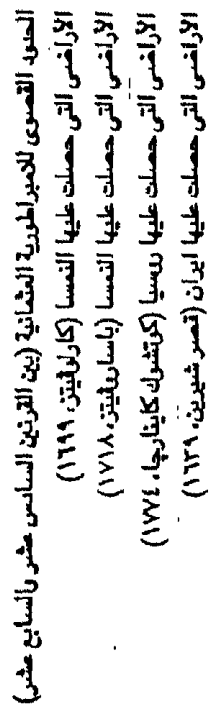 الحدود القصوى للامبراطورية العثمانية (بين القرنين السادس عشر والسابع عشر)
الأراضى التى حصلت عليها النمسا (كارلوفيتز، ١٦٩٩)
الأراضي التي حصلت عليها النمسا (باساروفيتز، ١٧١٨)
الأراضى التى حصلت عليها روسيا (كوتشوك كاينارچا، ١٧٧٤)
الأراضى التى حصلت عليها ايران (قصر شيرين، ١٦٣٩)